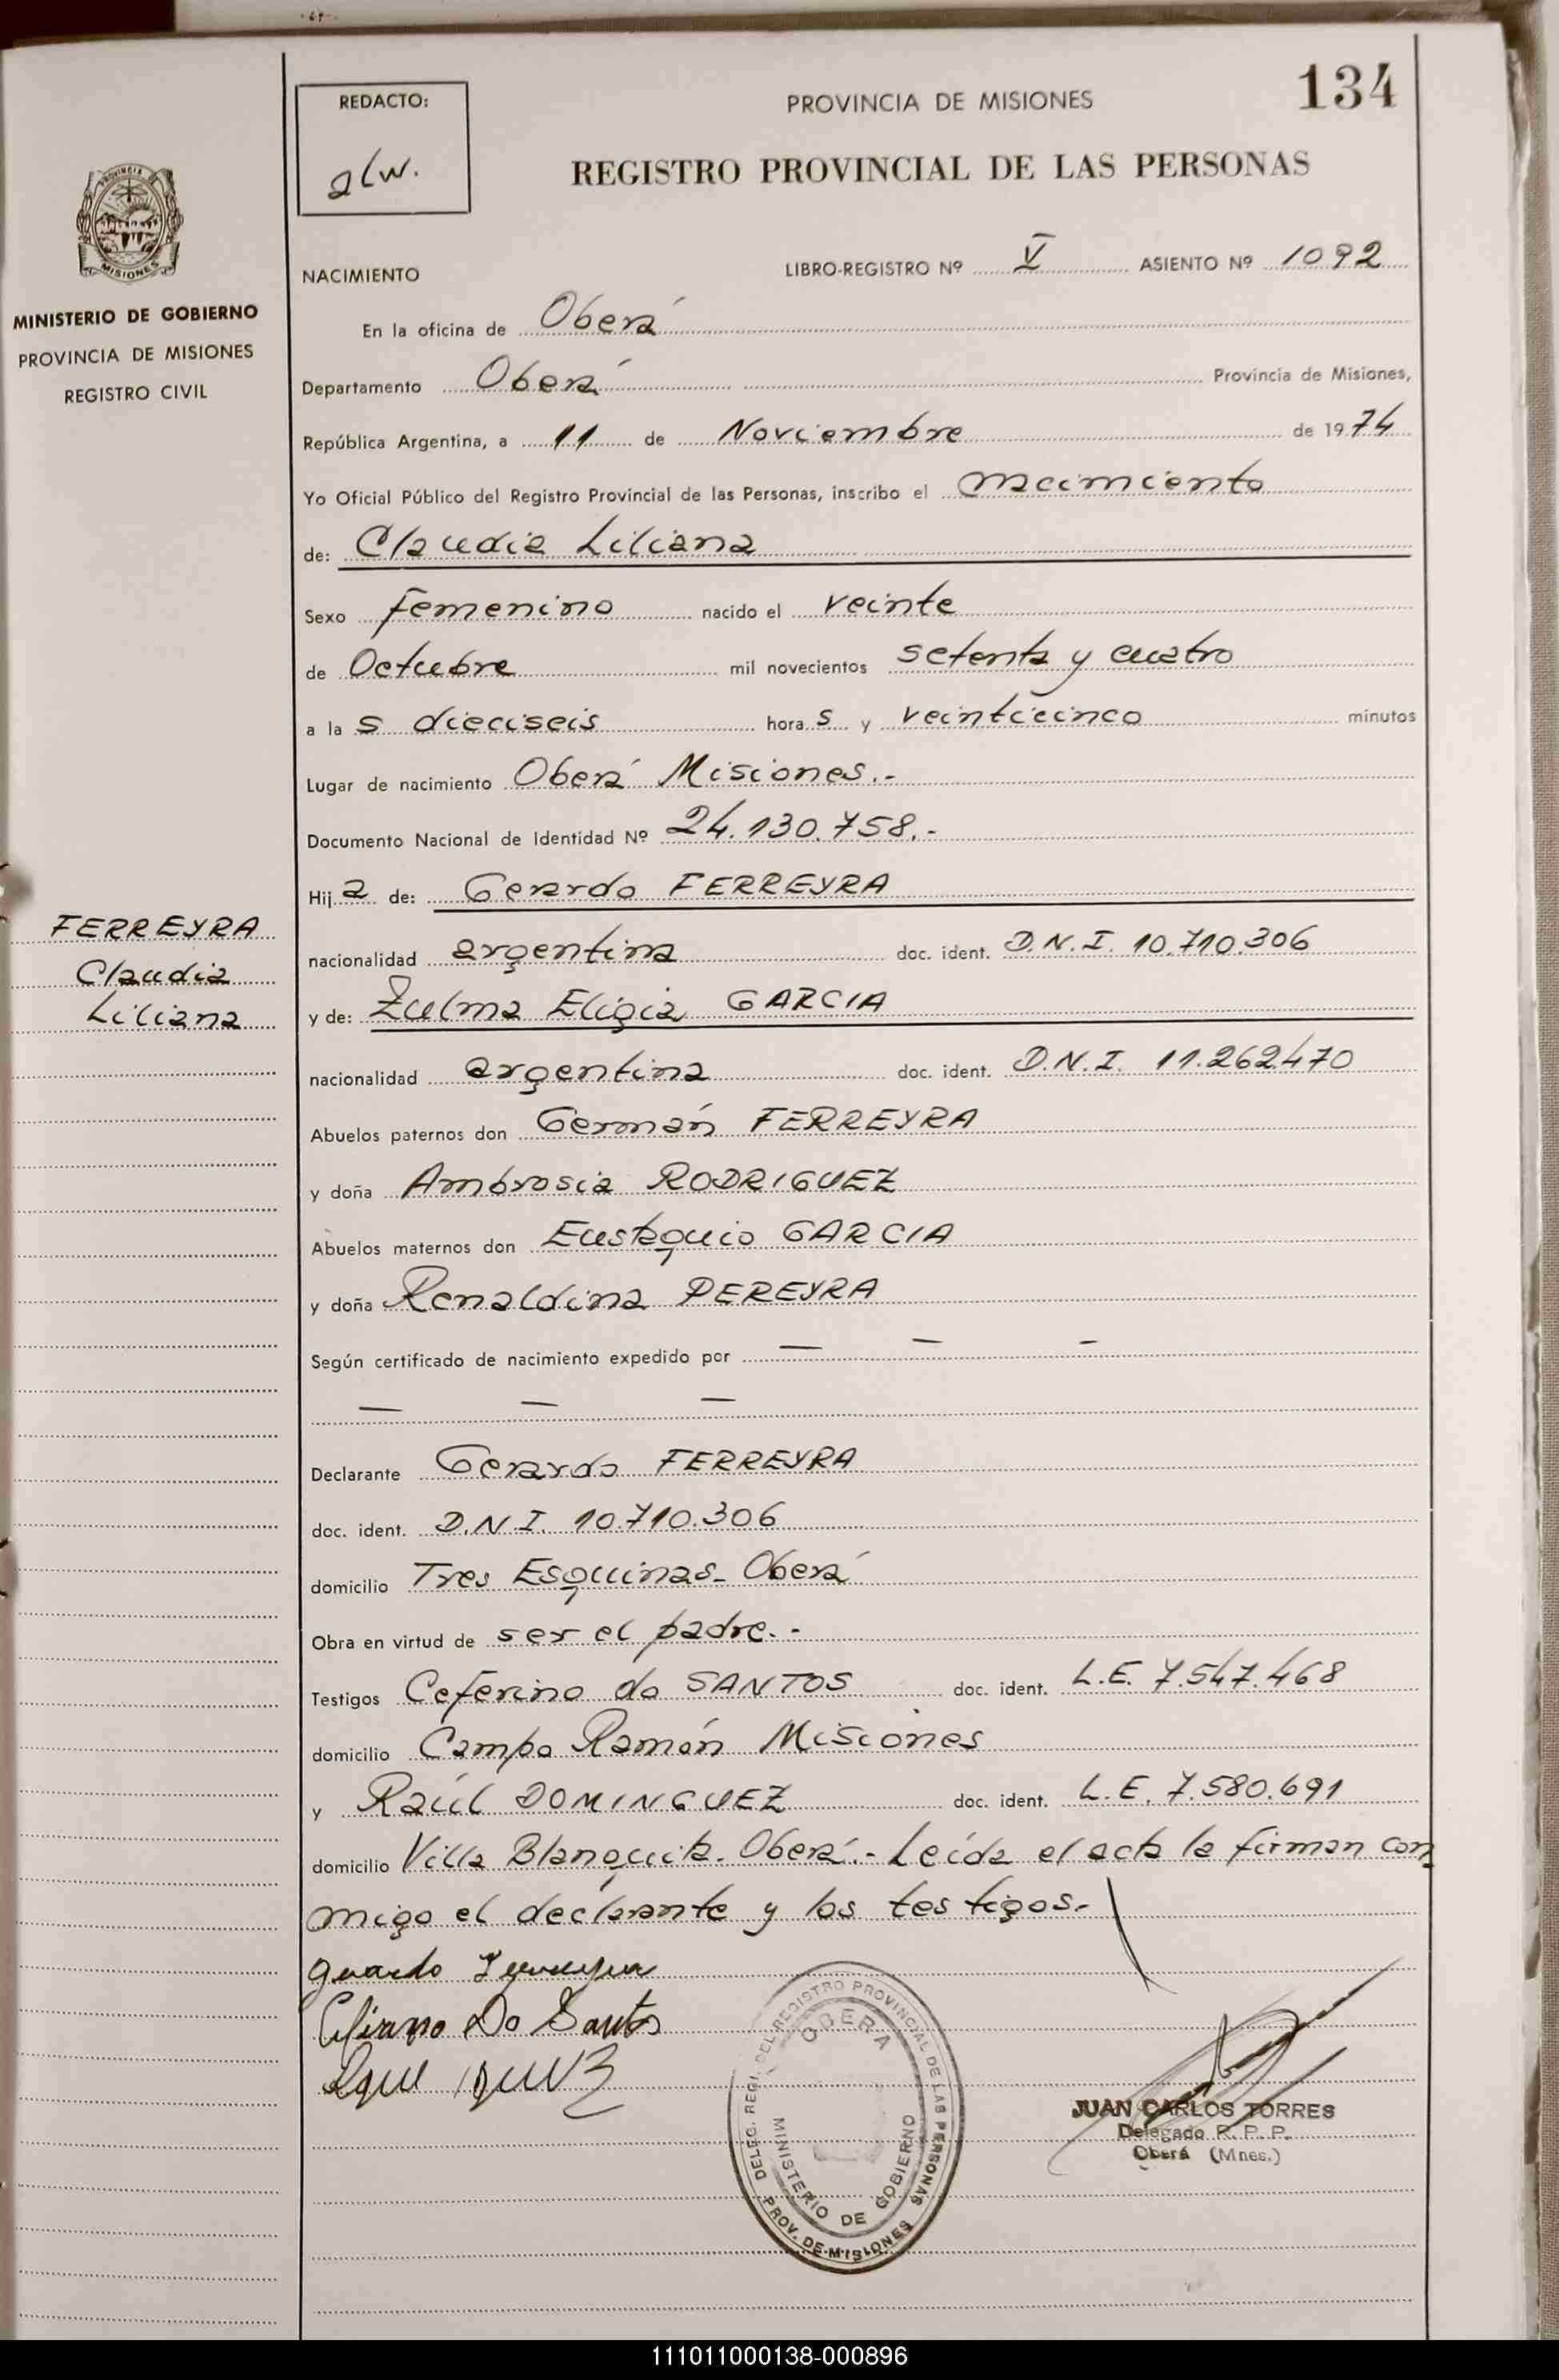 134
REDACTO:
PROVINCIA DE MISIONES
REGISTRO PROVINCIAL DE LAS PERSONAS
MISIONES
MINISTERIO DE GOBIERNO
PROVINCIA DE MISIONES
REGISTRO CIVIL
NACIMIENTO LIBRO-REGISTRO Nº V ASIENTO Nº 1092
En la oficina de Oberá
Departamento Oberá Provincia de Misiones,
República Argentina, a 11 de Noviembre de 1974
Yo Oficial Público del Registro Provincial de las Personas, inscribo el nacimiento
de: Claudia Liliana
Sexo femenino nacido el veinte
de Octubre mil novecientos setenta y cuatro
a la s dieciseis hora s y veinticinco minutos
Lugar de nacimiento Oberá Misiones.-
Documento Nacional de Identidad Nº 24.130.758.-
Hij a de: Gerardo FERREYRA
FERREYRA
Claudia
Liliana
nacionalidad argentina doc. ident. D.N.I. 10.710.306
y de: Zulma Eligia GARCIA
nacionalidad argentina doc. ident. D.N.I. 11.262.470
Abuelos paternos don Germán FERREYRA
y doña Ambrosia RODRIGUEZ
Abuelos maternos don Eustaquio GARCIA
y doña Renaldina PEREYRA
Según certificado de nacimiento expedido por — — —
— — —
Declarante Gerardo FERREYRA
doc. ident. D.N.I. 10.710.306
domicilio Tres Esquinas- Oberá
Obra en virtud de ser el padre.-
Testigos Ceferino do SANTOS doc. ident. L.E. 7.547.468
domicilio Campo Ramón Misiones
y Raúl DOMINGUEZ doc. ident. L.E. 7.580.691
domicilio Villa Blanquita- Oberá.- Leída el acta la firman con
migo el declarante y los testigos.-
Do Santos
DELEG. REGI. DEL REGISTRO PROVINCIAL DE LAS PERSONAS
OBERA
MINISTERIO DE GOBIERNO
PROV. DE MISIONES
JUAN CARLOS TORRES
Delegado R. P. P.
Oberá (Mnes.)
111011000138-000896